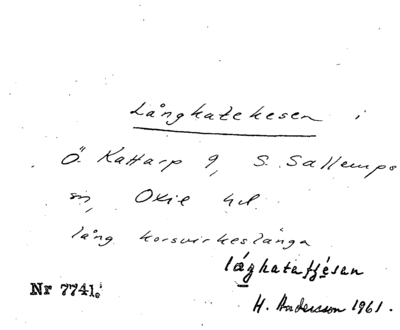 Långhatekesen i
Ö. Kattarp 9, S. Sallerups
sn, Oxie hd.
lång korsvirkeslänga
låghatatjésen
Nr 7741.
H. Andersson 1961.